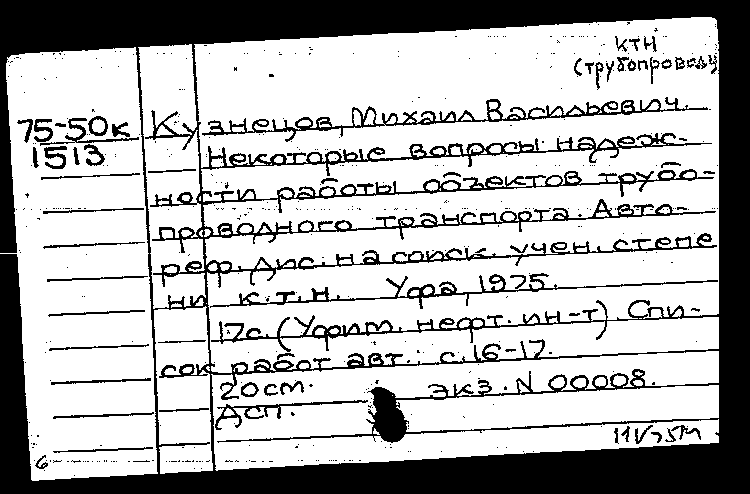 КТН
(трубопровод)
75-50к
1513
Кузнецов, Михаил Васильевич.
Некоторые вопросы надеж-
ности работы объектов трубо-
проводного транспорта. Авто-
реф. дис. на соиск. учен. степе
ни к.т.н. Уфа, 1975.
17с. (Уфим. нефт. ин-т). Спи-
сок работ авт.: с.16-17.
20см. экз. N 00008.
Дсп.
6